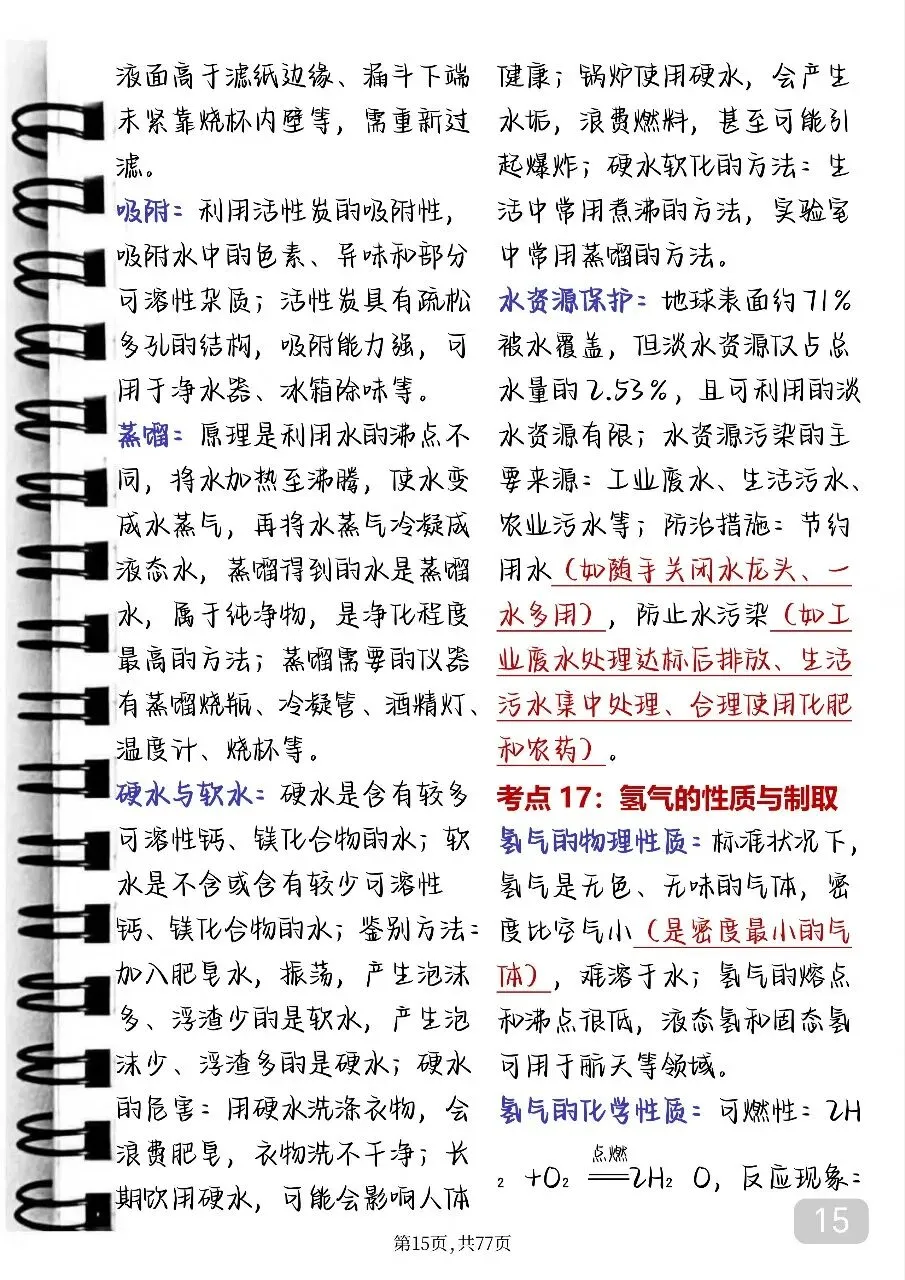 液面高于滤纸边缘、漏斗下端
未紧靠烧杯内壁等，需重新过
滤。
吸附：利用活性炭的吸附性，
吸附水中的色素、异味和部分
可溶性杂质；活性炭具有疏松
多孔的结构，吸附能力强，可
用于净水器、冰箱除味等。
蒸馏：原理是利用水的沸点不
同，将水加热至沸腾，使水变
成水蒸气，再将水蒸气冷凝成
液态水，蒸馏得到的水是蒸馏
水，属于纯净物，是净化程度
最高的方法；蒸馏需要的仪器
有蒸馏烧瓶、冷凝管、酒精灯、
温度计、烧杯等。
硬水与软水：硬水是含有较多
可溶性钙、镁化合物的水；软
水是不含或含有较少可溶性
钙、镁化合物的水；鉴别方法：
加入肥皂水，振荡，产生泡沫
多、浮渣少的是软水，产生泡
沫少、浮渣多的是硬水；硬水
的危害：用硬水洗涤衣物，会
浪费肥皂，衣物洗不干净；长
期饮用硬水，可能会影响人体
健康；锅炉使用硬水，会产生
水垢，浪费燃料，甚至可能引
起爆炸；硬水软化的方法：生
活中常用煮沸的方法，实验室
中常用蒸馏的方法。
水资源保护：地球表面约71%
被水覆盖，但淡水资源仅占总
水量的2.53%，且可利用的淡
水资源有限；水资源污染的主
要来源：工业废水、生活污水、
农业污水等；防治措施：节约
用水（如随手关闭水龙头、一
水多用），防止水污染（如工
业废水处理达标后排放、生活
污水集中处理、合理使用化肥
和农药）。
考点 17：氢气的性质与制取
氢气的物理性质：标准状况下，
氢气是无色、无味的气体，密
度比空气小（是密度最小的气
体），难溶于水；氢气的熔点
和沸点很低，液态氢和固态氢
可用于航天等领域。
氢气的化学性质：可燃性：2H
点燃
₂ +O₂ ══2H₂ O，反应现象：
15
第15页，共77页